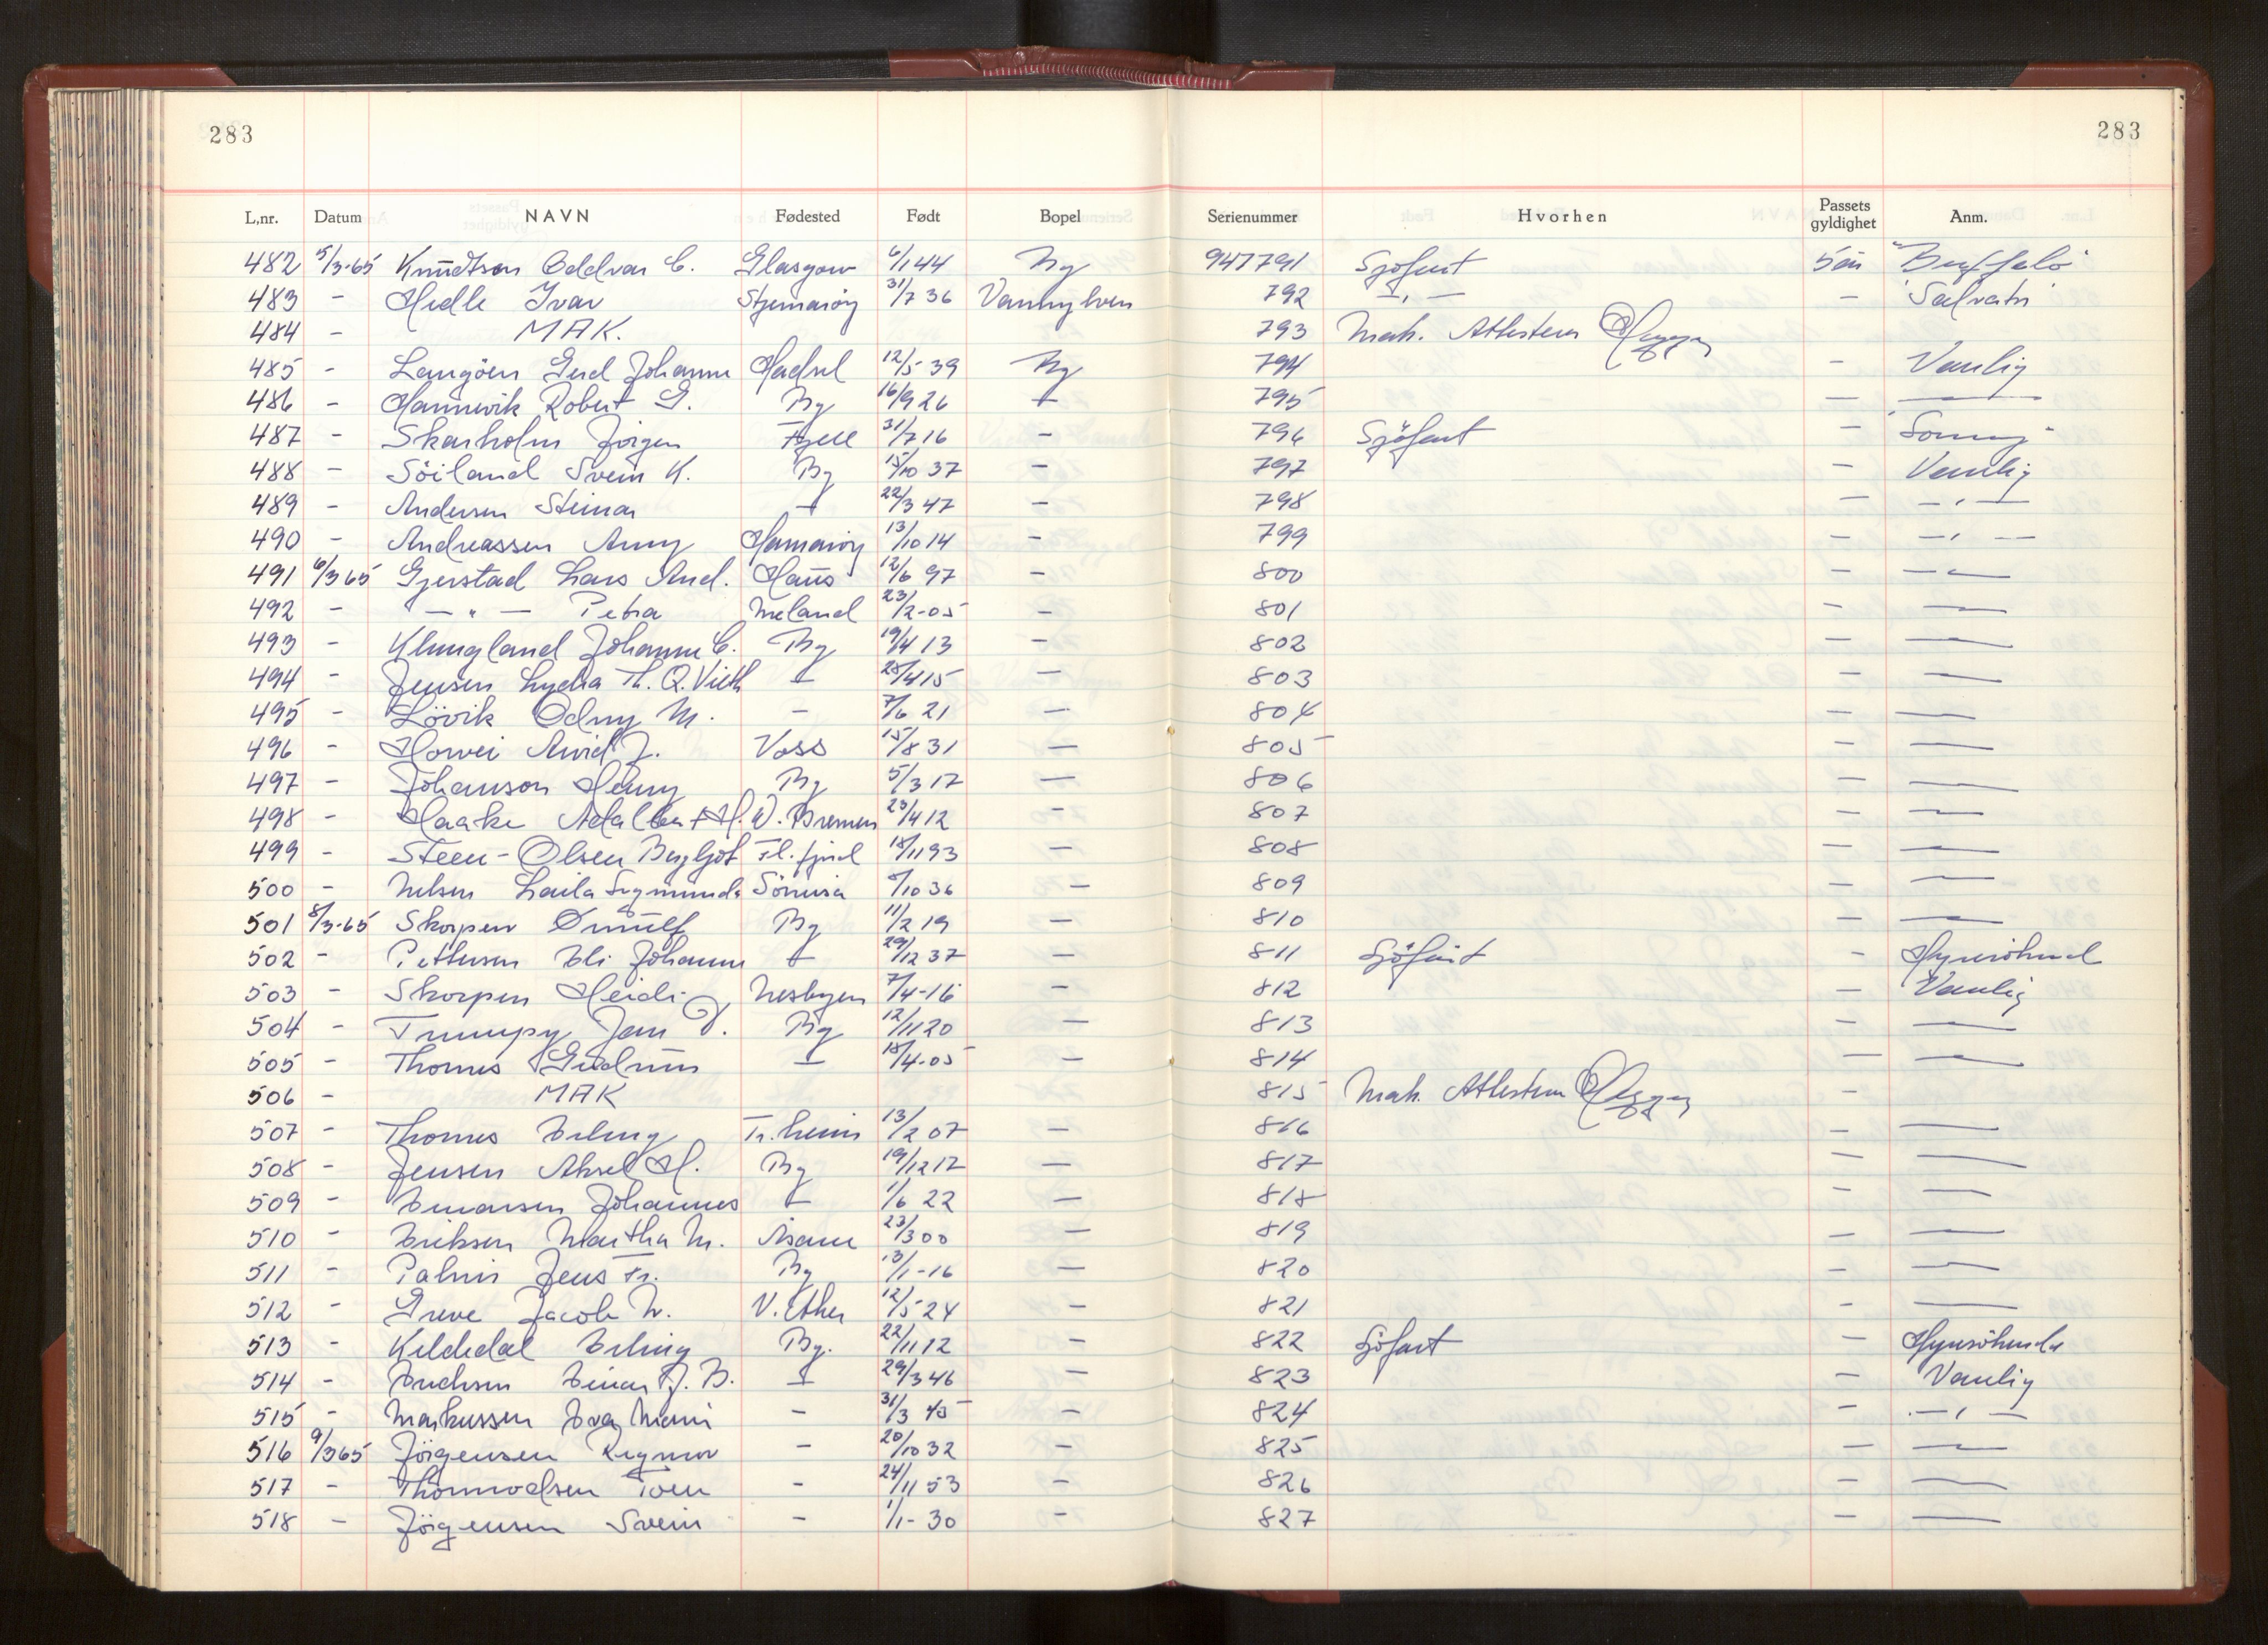 283 283
L,nr. Datum NAVN Fødested Født Bopel Serienummer Hvorhen Passets gyldighet Anm.
482 5/3-65 Knudtson Oddvar C. Glasgow 6/1 44 Bg 947791 Sjöfart 5 år "Buffalo"
483 - Hedle Ivar Stjernarøy 31/7 36 Vannylven 792 -,- - "Salvator"
484 - MAK. 793 Mak. Attesteres
485 - Langöen Gerd Johanne Hadsel 12/5 39 Bg 794 - Vanlig
486 - Hannevik Robert G. By 16/9 26 - 795 - -
487 - Skarholm Jörgen Fjell 31/7 16 - 796 Sjöfart - "Sonny"
488 - Söiland Svein K. Bg 15/10 37 - 797 - Vanlig
489 - Andersen Steinar - 22/3 47 - 798 - -,-
490 - Andreassen Anny Hamarøy 13/10 14 - 799 - -,-
491 6/3 65 Gjerstad Lars And. Haus 12/6 97 - 800 - -
492 - -"- Petra Meland 23/2-05 - 801 - -
493 - Klungland Johanne C. Bg 19/4 13 - 802 - -
494 - Jensen Lydia Th. Q. Vieth - 28/4 15 - 803 - -
495 - Lövik Odny M. - 7/6 21 - 804 - -
496 - Horvei Arvid J. Voss 15/8 31 - 805 - -
497 - Johanson Henny Bg 5/3 17 - 806 - -
498 - Haake Adalbert H. W. Bremen 23/4 12 - 807 - -
499 - Steen-Olsen Bergljot Fl. fjord 18/11 93 - 808 - -
500 - Nilsen Laila Sigmunda /10 36 - 809 - -
501 8/3-65 Skorpen Ørnulf Bg 11/2 19 - 810 - -
502 - Pettersen Eli Johanne - 29/12 37 - 811 Sjöfart - Hyresöhund
503 - Skorpen Heidi Nesbyen 7/4-16 - 812 - Vanlig
504 - Trumpy Jan J. Bg 12/11 20 - 813 - -
505 - Thomes Gudrun - 18/4-05 - 814 - -
506 - MAK 815 Mak. Attesteres -
507 - Thomes Erling Tr.heim 13/2 07 - 816 - -
508 - Jensen Aksel H. Bg 19/12 12 - 817 - -
509 - Johannes - 1/6 22 - 818 - -
510 - Eriksen Martha M. Åsane 23/3 00 - 819 - -
511 - Jens Fr. Bg 13/1-16 - 820 - -
512 - Greve Jacob W. V. Aker 12/5 24 - 821 - -
513 - Kildedal Erling Bg. 22/11 12 - 822 Sjöfart -
514 - Einar J. B. - 29/3 46 - 823 - Vanlig
515 - Markussen Eva Marie - 31/3 45 - 824 - -,-
516 9/3 65 Jörgensen Rigmor - 20/10 32 - 825 - -
517 - Thormodsen Toen - 24/11 53 - 826 - -
518 - Jörgensen Svein - 1/1-30 - 827 - -